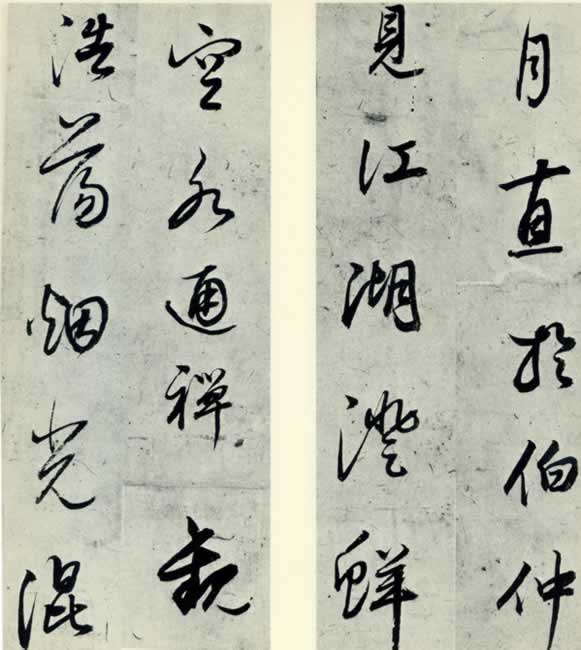 月直於伯仲
見江湖澄鮮
空水通禪觀
浩蕩烟光混